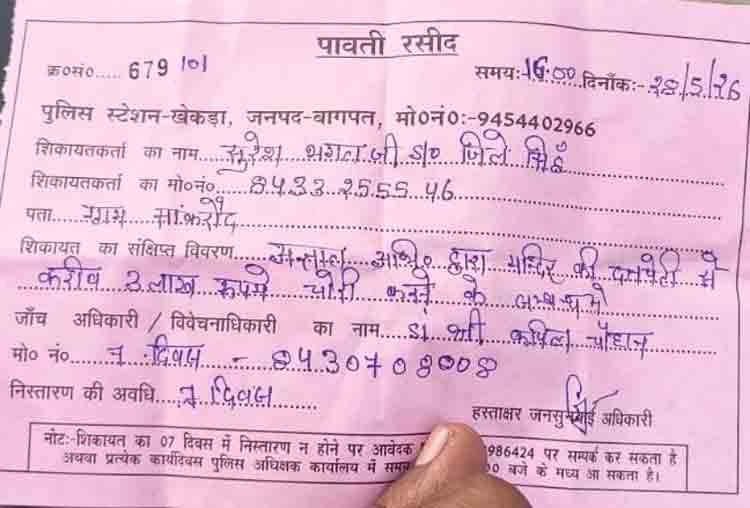 पावती रसीद
क्र०सं०..... 679 101 समय:.16.00..दिनाँक:-.28/5/26
पुलिस स्टेशन-खेकड़ा, जनपद-बागपत, मो०नं०:-9454402966
शिकायतकर्ता का नाम....सुरेश भगत जी S/o जिले सिंह
शिकायतकर्ता का मो०नं०....8433 2555 46
पता.....ग्राम सांकरौद
शिकायत का संक्षिप्त विवरण.....अज्ञात अभि० द्वारा मन्दिर की दानपेटी से
करीब 3 लाख रूपये चोरी करने के सम्बन्ध मे
जाँच अधिकारी / विवेचनाधिकारी का नाम..... श्री कपिल चौहान
मो० नं०.....7 दिवस - 8430708008
निस्तारण की अवधि....7 दिवस
हस्ताक्षर जनसुनवाई अधिकारी
नोट:-शिकायत का 07 दिवस में निस्तारण न होने पर आवेदक 986424 पर सम्पर्क कर सकता है
अथवा प्रत्येक कार्यदिवस पुलिस अधिक्षक कार्यालय में 00 बजे के मध्य आ सकता है।